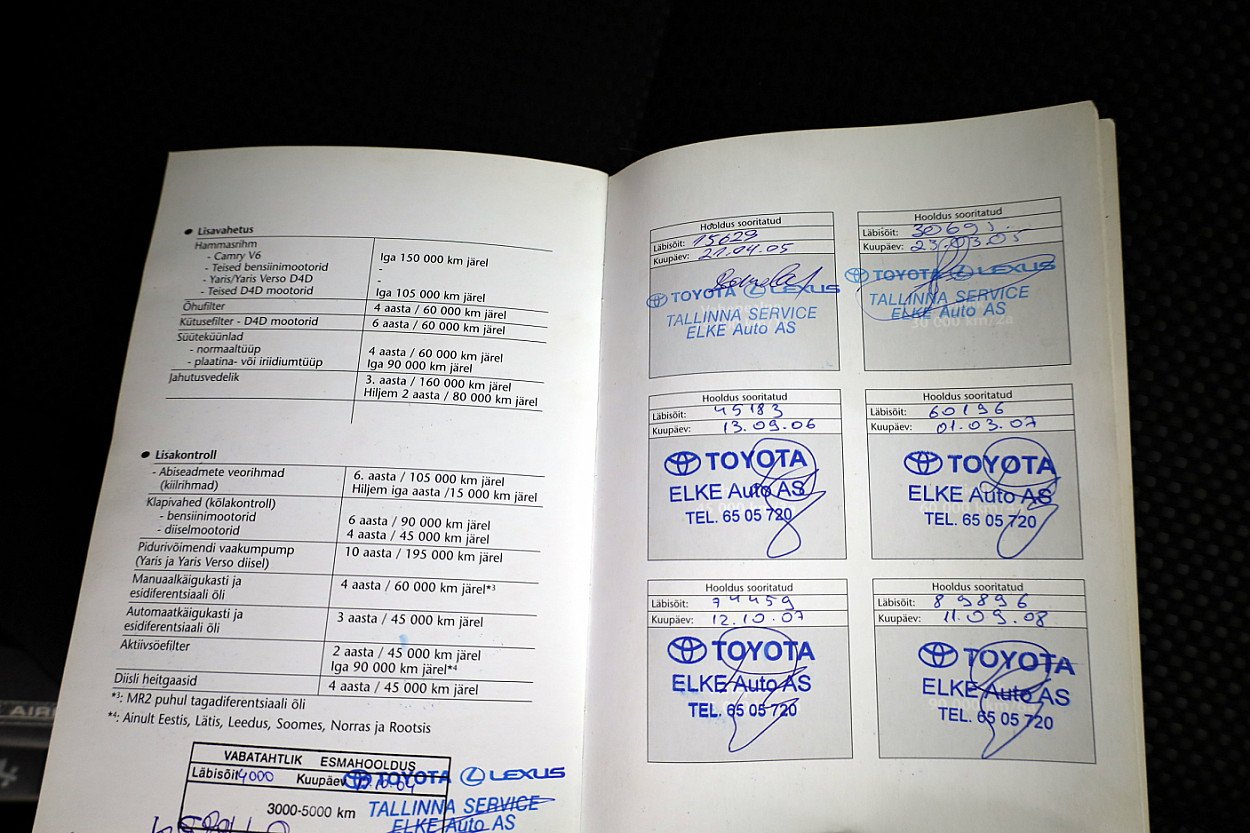 ● Lisavahetus
Hammasrihm
- Camry V6 Iga 150 000 km järel
- Teised bensiinimootorid -
- Yaris/Yaris Verso D4D -
- Teised D4D mootorid Iga 105 000 km järel
Õhufilter 4 aasta / 60 000 km järel
Kütusefilter - D4D mootorid 6 aasta / 60 000 km järel
Süüteküünlad
- normaaltüüp 4 aasta / 60 000 km järel
- plaatina- või iriidiumtüüp Iga 90 000 km järel
Jahutusvedelik 3. aasta / 160 000 km järel
Hiljem 2 aasta / 80 000 km järel
● Lisakontroll
- Abiseadmete veorihmad 6. aasta / 105 000 km järel
(kiilrihmad) Hiljem iga aasta /15 000 km järel
Klapivahed (kõlakontroll)
- bensiinimootorid 6 aasta / 90 000 km järel
- diiselmootorid 4 aasta / 45 000 km järel
Pidurivõimendi vaakumpump 10 aasta / 195 000 km järel
(Yaris ja Yaris Verso diisel)
Manuaalkäigukasti ja 4 aasta / 60 000 km järel*³
esidiferentsiaali õli
Automaatkäigukasti ja 3 aasta / 45 000 km järel
esidiferentsiaali õli
Aktiivsöefilter 2 aasta / 45 000 km järel
Iga 90 000 km järel*⁴
Diisli heitgaasid 4 aasta / 45 000 km järel
*³: MR2 puhul tagadiferentsiaali õli
*⁴: Ainult Eestis, Lätis, Leedus, Soomes, Norras ja Rootsis
VABATAHTLIK ESMAHOOLDUS
Läbisõit 4000 Kuupäev
TOYOTA LEXUS
3000-5000 km
TALLINNA SERVICE
ELKE Auto AS
Hooldus sooritatud
Läbisõit: 15629
Kuupäev: 21.04.05
TOYOTA LEXUS
TALLINNA SERVICE
ELKE Auto AS
Hooldus sooritatud
Läbisõit:
Kuupäev:
TOYOTA LEXUS
TALLINNA SERVICE
ELKE Auto AS
30 000 km/2a
Hooldus sooritatud
Läbisõit: 45183
Kuupäev: 13.09.06
TOYOTA
ELKE Auto AS
TEL. 65 05 720
Hooldus sooritatud
Läbisõit: 60196
Kuupäev: 01.03.07
TOYOTA
ELKE Auto AS
TEL. 65 05 720
Hooldus sooritatud
Läbisõit: 74459
Kuupäev: 12.10.07
TOYOTA
ELKE Auto AS
TEL. 65 05 720
Hooldus sooritatud
Läbisõit: 89896
Kuupäev: 11.09.08
TOYOTA
ELKE Auto AS
TEL. 65 05 720